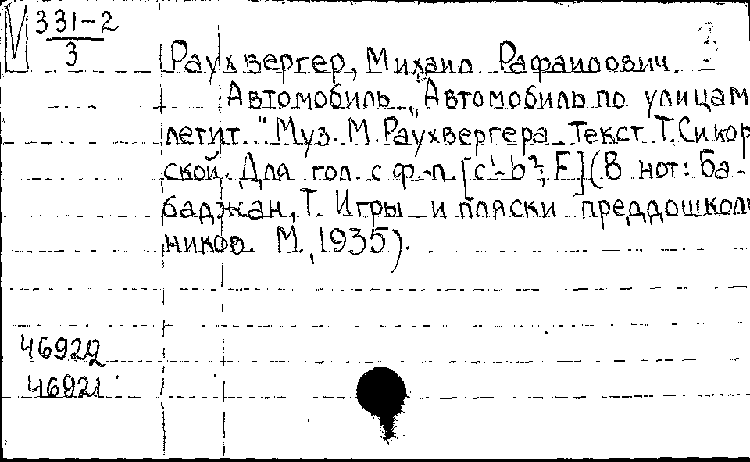 М 331-2
3
3
Раухвергер, Михаил Рафаилович
Автомобиль. "Автомобиль по улицам
летит." Муз. М. Раухвергера. Текст Т. Сикор
ской. Для гол. с ф-п. [c¹-b²; F] (В нот: Ба-
баджан, Т. Игры и пляски преддошколь
ников. М., 1935).
46922
46921